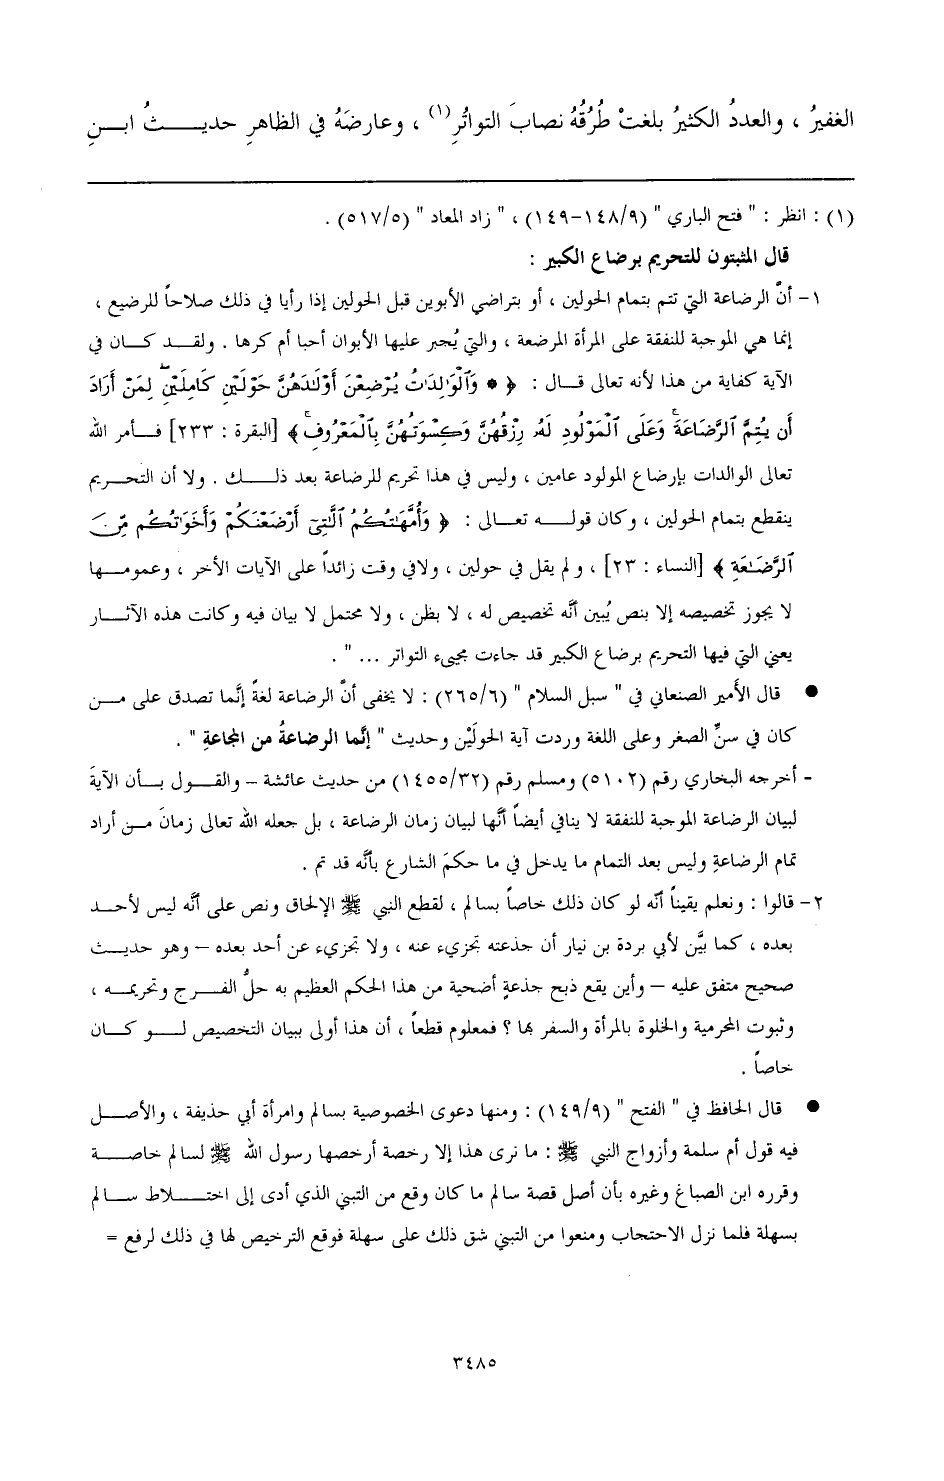 الغفيرُ ، والعددُ الكثيرُ بلغتْ طُرُقُهُ نصابَ التواتُرِ(١) ، وعارضَهُ في الظاهرِ حديـــثُ ابـنِ
(١) : انظر : " فتح الباري " (١٤٨/٩-١٤٩) ، " زاد المعاد " (٥١٧/٥) .
قال المثبتون للتحريم برضاع الكبير :
١- أنَّ الرضاعة التي تتم بتمام الحولين ، أو بتراضي الأبوين قبل الحولين إذا رأيا في ذلك صلاحاً للرضيع ،
إنما هي الموجبة للنفقة على المرأة المرضعة ، والتي يُجبر عليها الأبوان أحبا أم كرها . ولقـد كــان في
الآية كفاية من هذا لأنه تعالى قــال : ﴿ * وَٱلْوَٰلِدَٰتُ يُرْضِعْنَ أَوْلَٰدَهُنَّ حَوْلَيْنِ كَامِلَيْنِ ۖ لِمَنْ أَرَادَ
أَن يُتِمَّ ٱلرَّضَاعَةَ ۚ وَعَلَى ٱلْمَوْلُودِ لَهُۥ رِزْقُهُنَّ وَكِسْوَتُهُنَّ بِٱلْمَعْرُوفِ ۚ ﴾ [البقرة : ٢٣٣] فــأمر الله
تعالى الوالدات بإرضاع المولود عامين ، وليس في هذا تحريم للرضاعة بعد ذلــــك . ولا أن التحـريم
ينقطع بتمام الحولين ، وكان قولـــه تعــالى : ﴿ وَأُمَّهَٰتُكُمُ ٱلَّٰتِىٓ أَرْضَعْنَكُمْ وَأَخَوَٰتُكُم مِّنَ
ٱلرَّضَٰعَةِ ﴾ [النساء : ٢٣] ، ولم يقل في حولين ، ولافي وقت زائداً على الآيات الأخر ، وعمومــها
لا يجوز تخصيصه إلا بنص يُبين أنَّه تخصيص له ، لا بظن ، ولا محتمل لا بيان فيه وكانت هذه الآثــار
يعني التي فيها التحريم برضاع الكبير قد جاءت مجيء التواتر ... " .
● قال الأمير الصنعاني في " سبل السلام " (٢٦٥/٦) : لا يخفى أنَّ الرضاعة لغةً إنَّما تصدق على مــن
كان في سنِّ الصغر وعلى اللغة وردت آية الحولَيْن وحديث " إنَّما الرضاعةُ من المجاعةِ " .
- أخرجه البخاري رقم (٥١٠٢) ومسلم رقم (١٤٥٥/٣٢) من حديث عائشة – والقــول بــأن الآيةَ
لبيان الرضاعة الموجبة للنفقة لا ينافي أيضاً أنَّها لبيان زمان الرضاعة ، بل جعله الله تعالى زمانَ مــن أراد
تمام الرضاعةِ وليس بعد التمام ما يدخل في ما حكمَ الشارع بأنَّه قد تم .
٢- قالوا : ونعلم يقيناً أنَّه لو كان ذلك خاصاً بسالم ، لقطع النبي ﷺ الإلحاق ونص على أنَّه ليس لأحــد
بعده ، كما بيَّن لأبي بردة بن نيار أن جذعته تجزيء عنه ، ولا تجزيء عن أحد بعده – وهو حديــث
صحيح متفق عليه – وأين يقع ذبح جذعةٍ أضحية من هذا الحكم العظيم به حلُّ الفــرج وتحريمــه ،
وثبوت المحرمية والخلوة بالمرأة والسفر بها ؟ فمعلوم قطعاً ، أن هذا أولى ببيان التخصيص لــو كــان
خاصاً .
● قال الحافظ في " الفتح " (١٤٩/٩) : ومنها دعوى الخصوصية بسالم وامرأة أبي حذيفة ، والأصــل
فيه قول أم سلمة وأزواج النبي ﷺ : ما نرى هذا إلا رخصة أرخصها رسول الله ﷺ لسالم خاصــة
وقرره ابن الصباغ وغيره بأن أصل قصة سالم ما كان وقع من التبني الذي أدى إلى اختــلاط ســالم
بسهلة فلما نزل الاحتجاب ومنعوا من التبني شق ذلك على سهلة فوقع الترخيص لها في ذلك لرفع =
٣٤٨٥